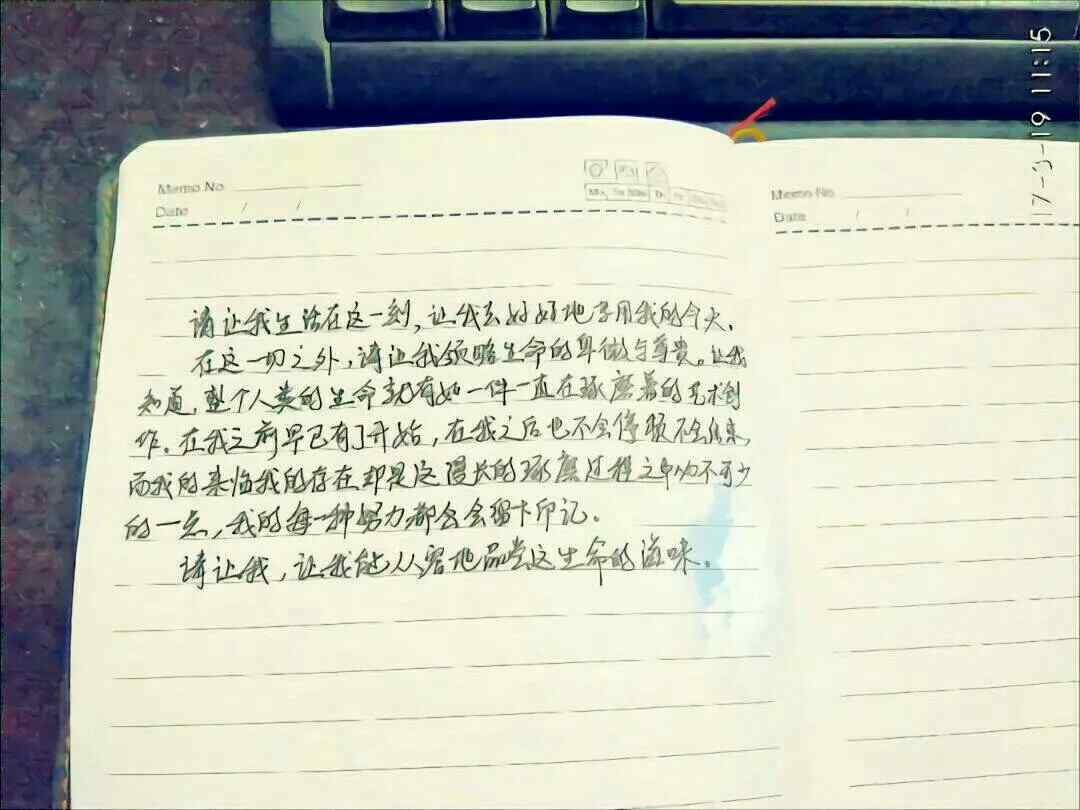 17-3-19 11:15
Memo No.
Date / /
请让我生活在这一刻,让我去好好地享用我的今天。
在这一切之外,请让我领略生命的卑微与尊贵。让我
知道,整个人类的生命就有如一件一直在琢磨着的艺术创
作。在我之前早已有了开始,在我之后也不会停顿不会结束,
而我的来临我的存在却是这漫长的琢磨过程之中必不可少
的一点,我的每一种努力都会留下印记。
请让我,让我能从容地品尝这生命的滋味。
Memo No.
Date / /